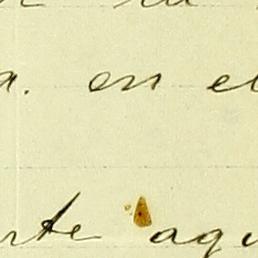 a. en el
rte aqu